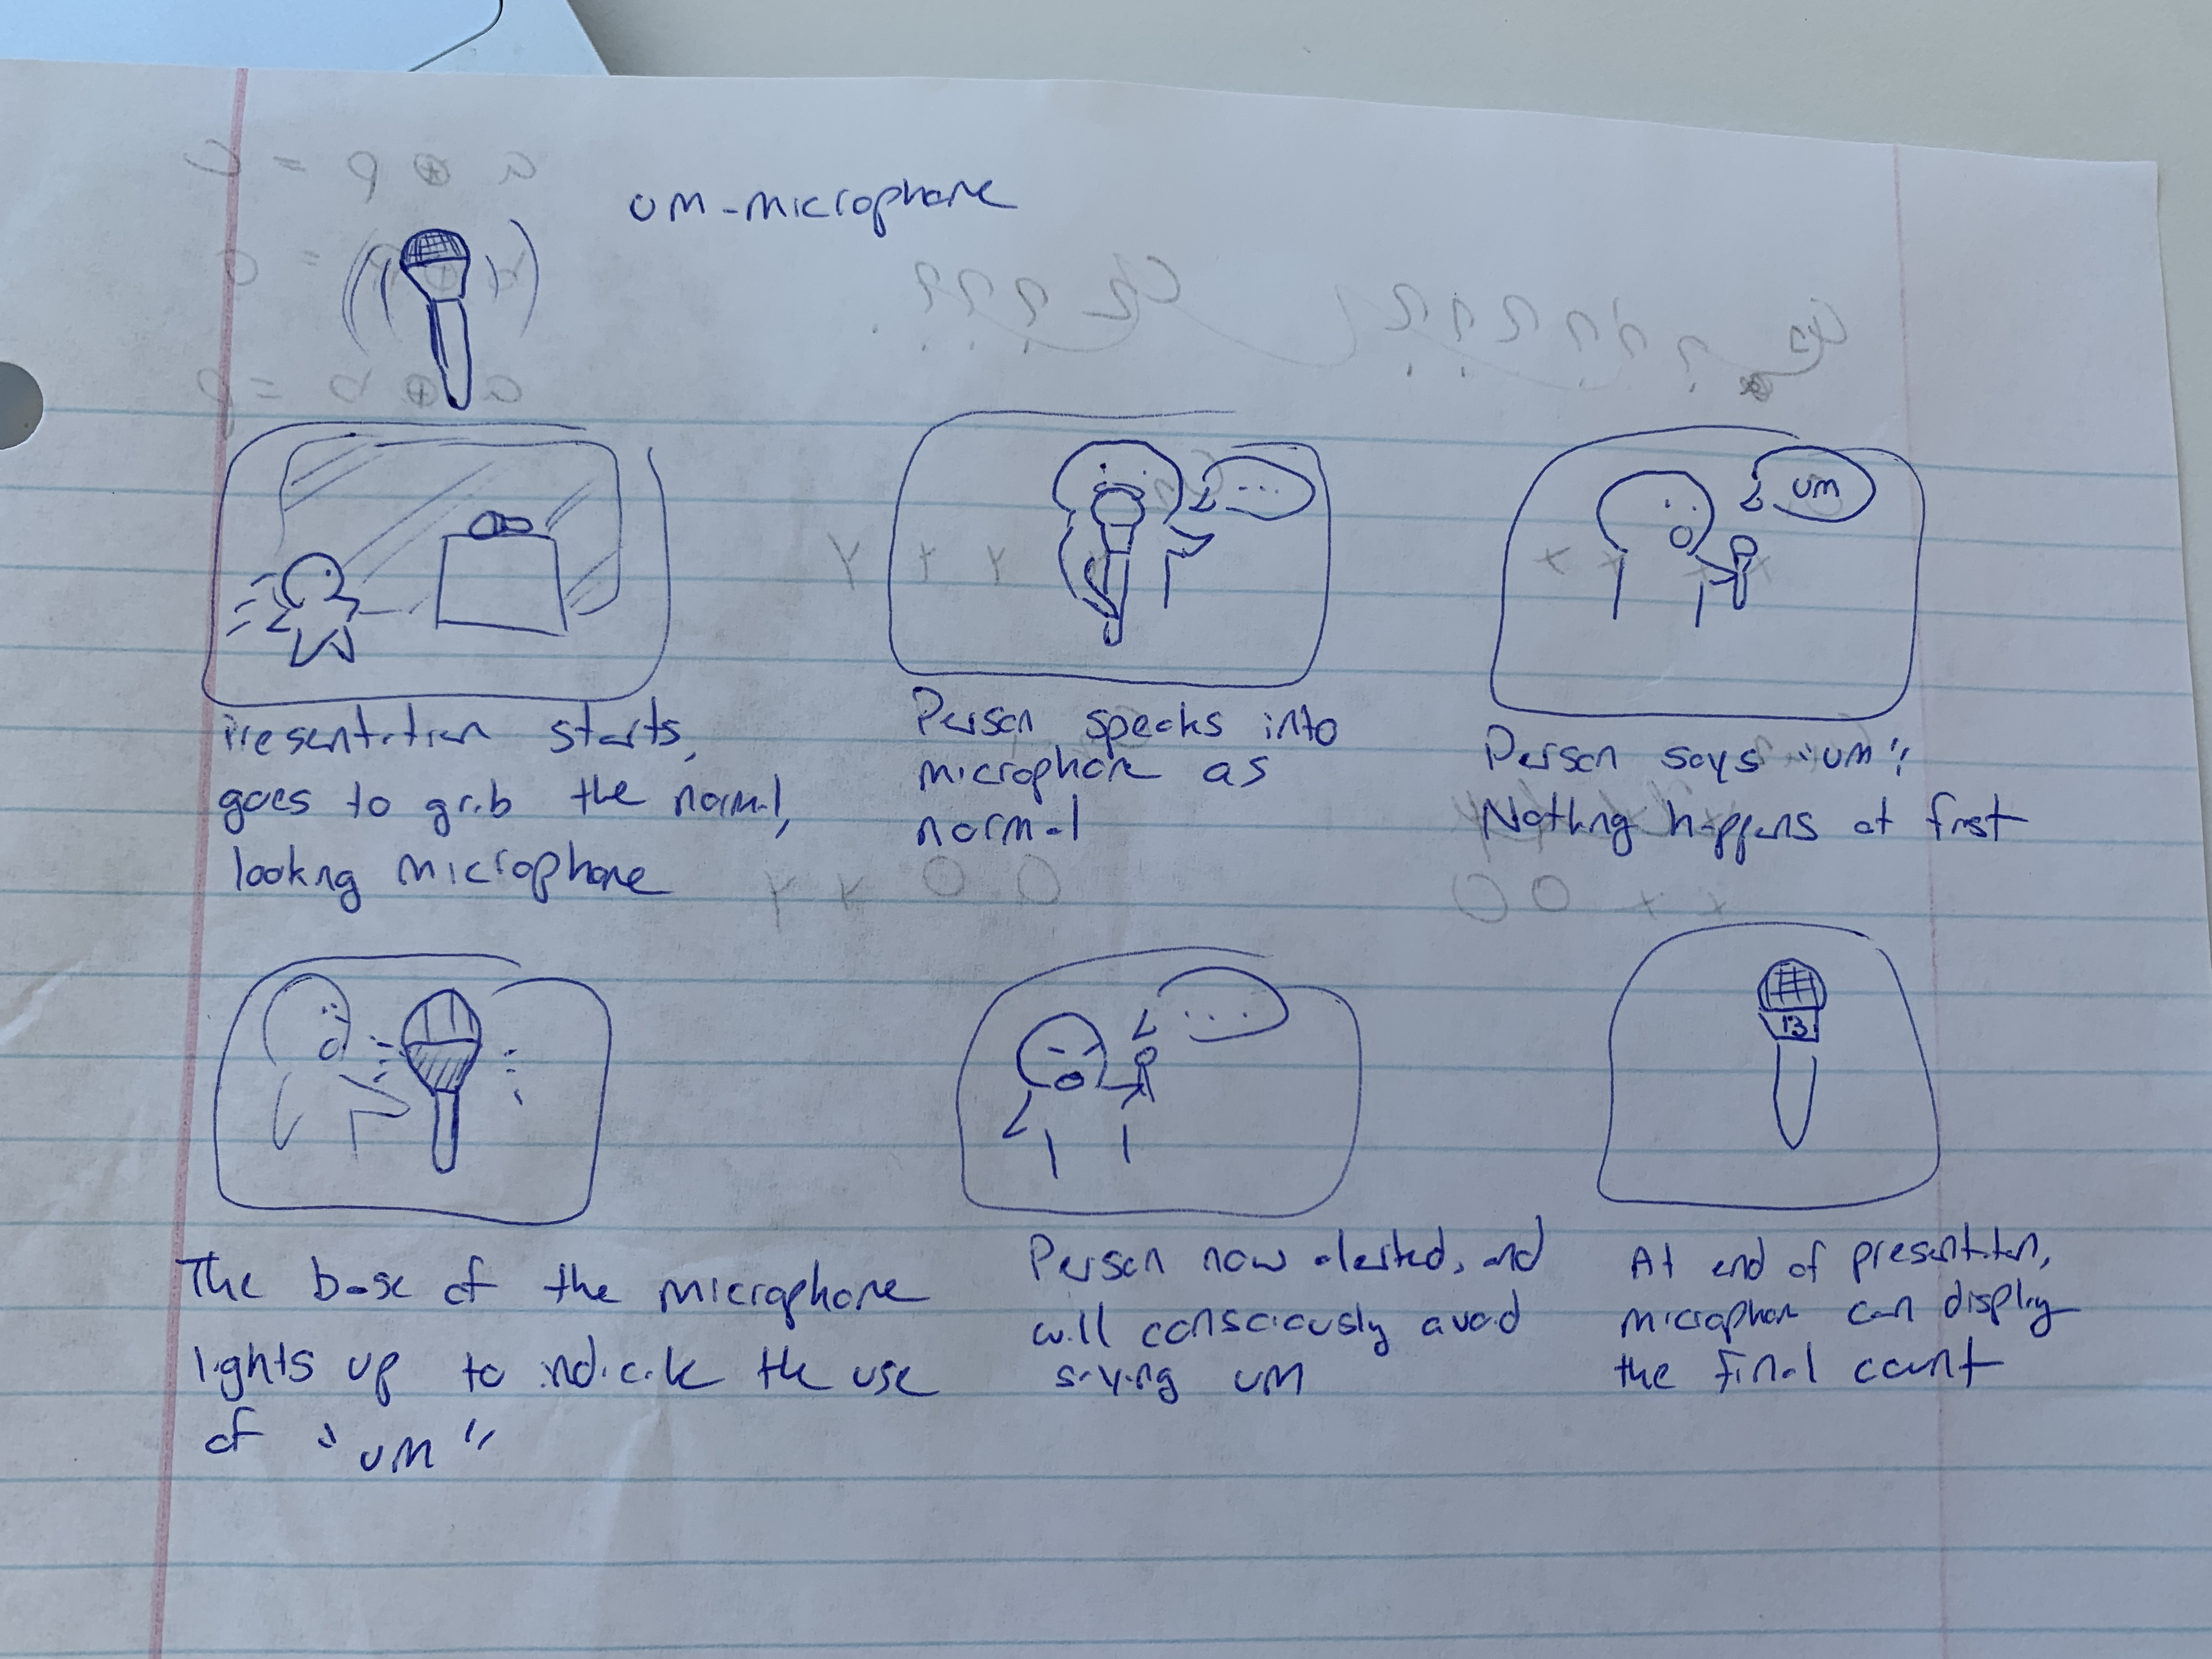 um-microphone
...
um
Presentation starts,
goes to grab the normal,
looking microphone
Person speaks into
microphone as
normal
Person says "um";
Nothing happens at first
...
13
The base of the microphone
lights up to indicate the use
of "um"
Person now alerted, and
will consciously avoid
saying um
At end of presentation,
microphone can display
the final count